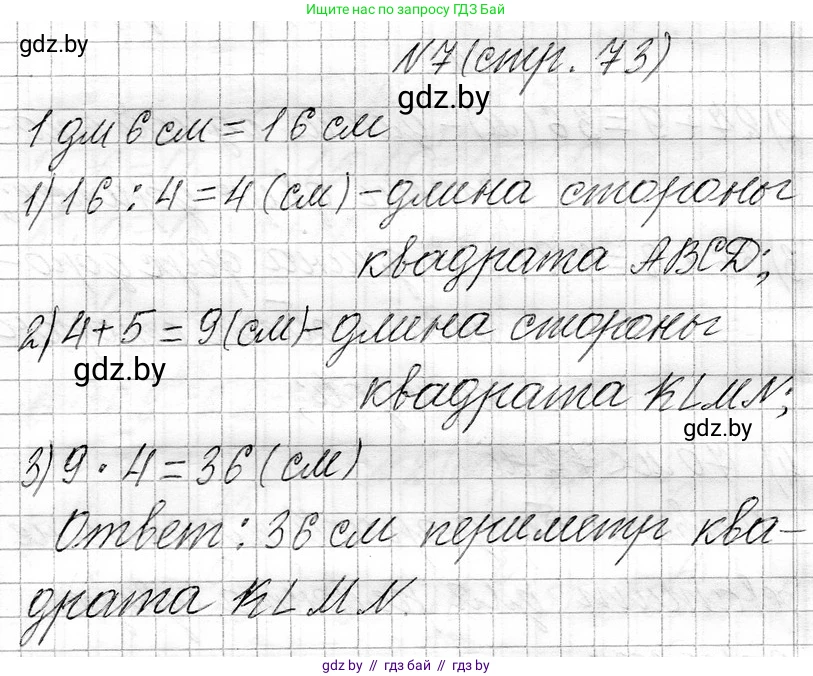 Ищите нас по запросу ГДЗ Бай
gdz.by
N7 (стр. 73)
gdz.by
1 дм 6 см = 16 см
1) 16 : 4 = 4 (см) – длина стороны
квадрата ABCD;
2) 4 + 5 = 9 (см) – длина стороны
gdz.by
квадрата KLMN;
gdz.by
3) 9 · 4 = 36 (см)
Ответ: 36 см периметр ква-
драта KLMN.
gdz.by // гдз бай // gdz.by